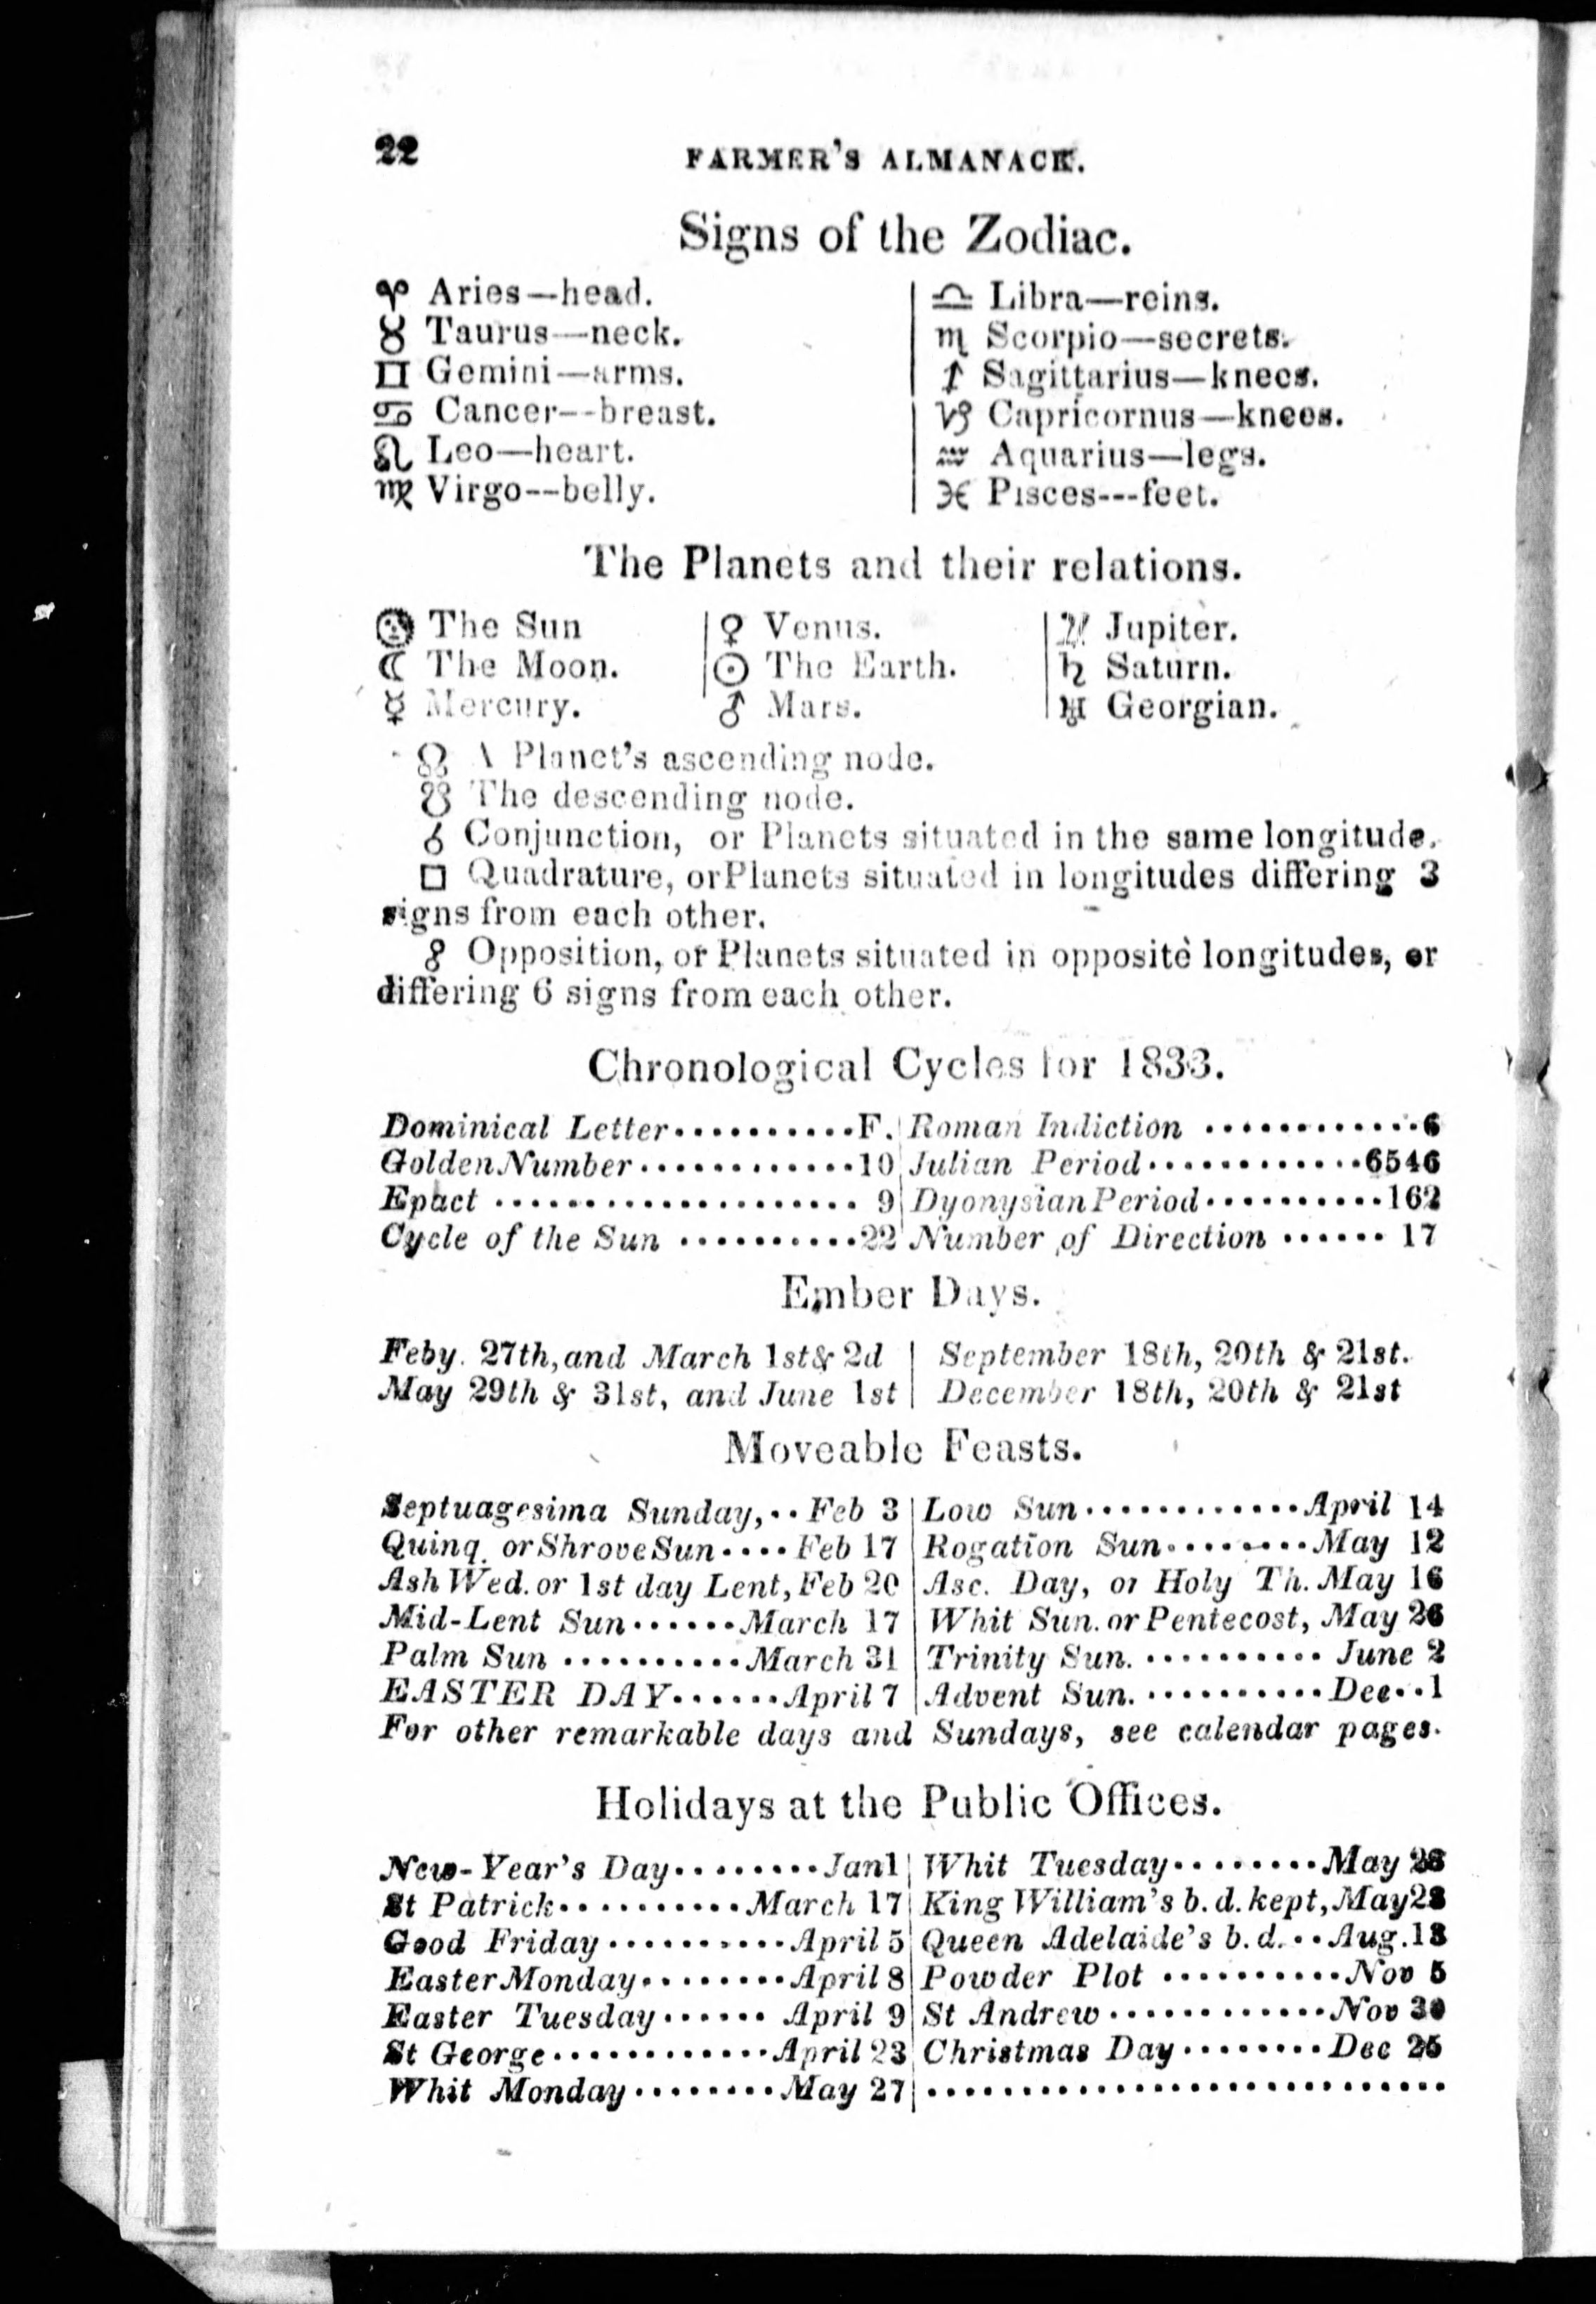 22 FARMER'S ALMANACK.
Signs of the Zodiac.
♈ Aries—head.
♉ Taurus—neck.
♊ Gemini—arms.
♋ Cancer--breast.
♌ Leo—heart.
♍ Virgo--belly.
♎ Libra—reins.
♏ Scorpio—secrets.
♐ Sagittarius—knees.
♑ Capricornus—knees.
♒ Aquarius—legs.
♓ Pisces---feet.
The Planets and their relations.
☉ The Sun
☾ The Moon.
☿ Mercury.
♀ Venus.
☉ The Earth.
♂ Mars.
♃ Jupiter.
♄ Saturn.
♅ Georgian.
☊ A Planet's ascending node.
☋ The descending node.
☌ Conjunction, or Planets situated in the same longitude.
□ Quadrature, or Planets situated in longitudes differing 3
signs from each other.
☍ Opposition, or Planets situated in opposite longitudes, or
differing 6 signs from each other.
Chronological Cycles for 1833.
Dominical Letter..........F.
Golden Number............10
Epact .................... 9
Cycle of the Sun ..........22
Roman Indiction ............6
Julian Period............6546
Dyonysian Period..........162
Number of Direction ...... 17
Ember Days.
Feby. 27th, and March 1st & 2d
May 29th & 31st, and June 1st
September 18th, 20th & 21st.
December 18th, 20th & 21st
Moveable Feasts.
Septuagesima Sunday,.. Feb 3
Quinq. or Shrove Sun.... Feb 17
Ash Wed. or 1st day Lent, Feb 20
Mid-Lent Sun......March 17
Palm Sun ..........March 31
EASTER DAY......April 7
Low Sun............April 14
Rogation Sun.........May 12
Asc. Day, or Holy Th. May 16
Whit Sun. or Pentecost, May 26
Trinity Sun. .......... June 2
Advent Sun. ..........Dec..1
For other remarkable days and Sundays, see calendar pages.
Holidays at the Public Offices.
New-Year's Day........Jan 1
St Patrick..........March 17
Good Friday..........April 5
Easter Monday........April 8
Easter Tuesday...... April 9
St George............April 23
Whit Monday........May 27
Whit Tuesday........May 28
King William's b. d. kept, May 28
Queen Adelaide's b. d...Aug. 13
Powder Plot ..........Nov 5
St Andrew............Nov 30
Christmas Day........Dec 25